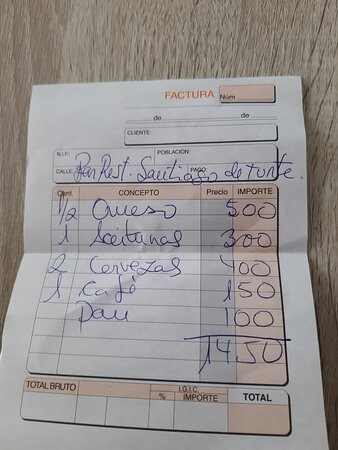 FACTURA Núm.
de de
CLIENTE:
N.I.F. POBLACION:
CALLE: Bar Rest. Santiago del PAGO
Cant. CONCEPTO Precio IMPORTE
1/2 Queso 500
1 Aceitunas 300
2 Cervezas 400
1 Café 150
Pan 100
14.50
TOTAL BRUTO I.G.I.C. TOTAL
% IMPORTE